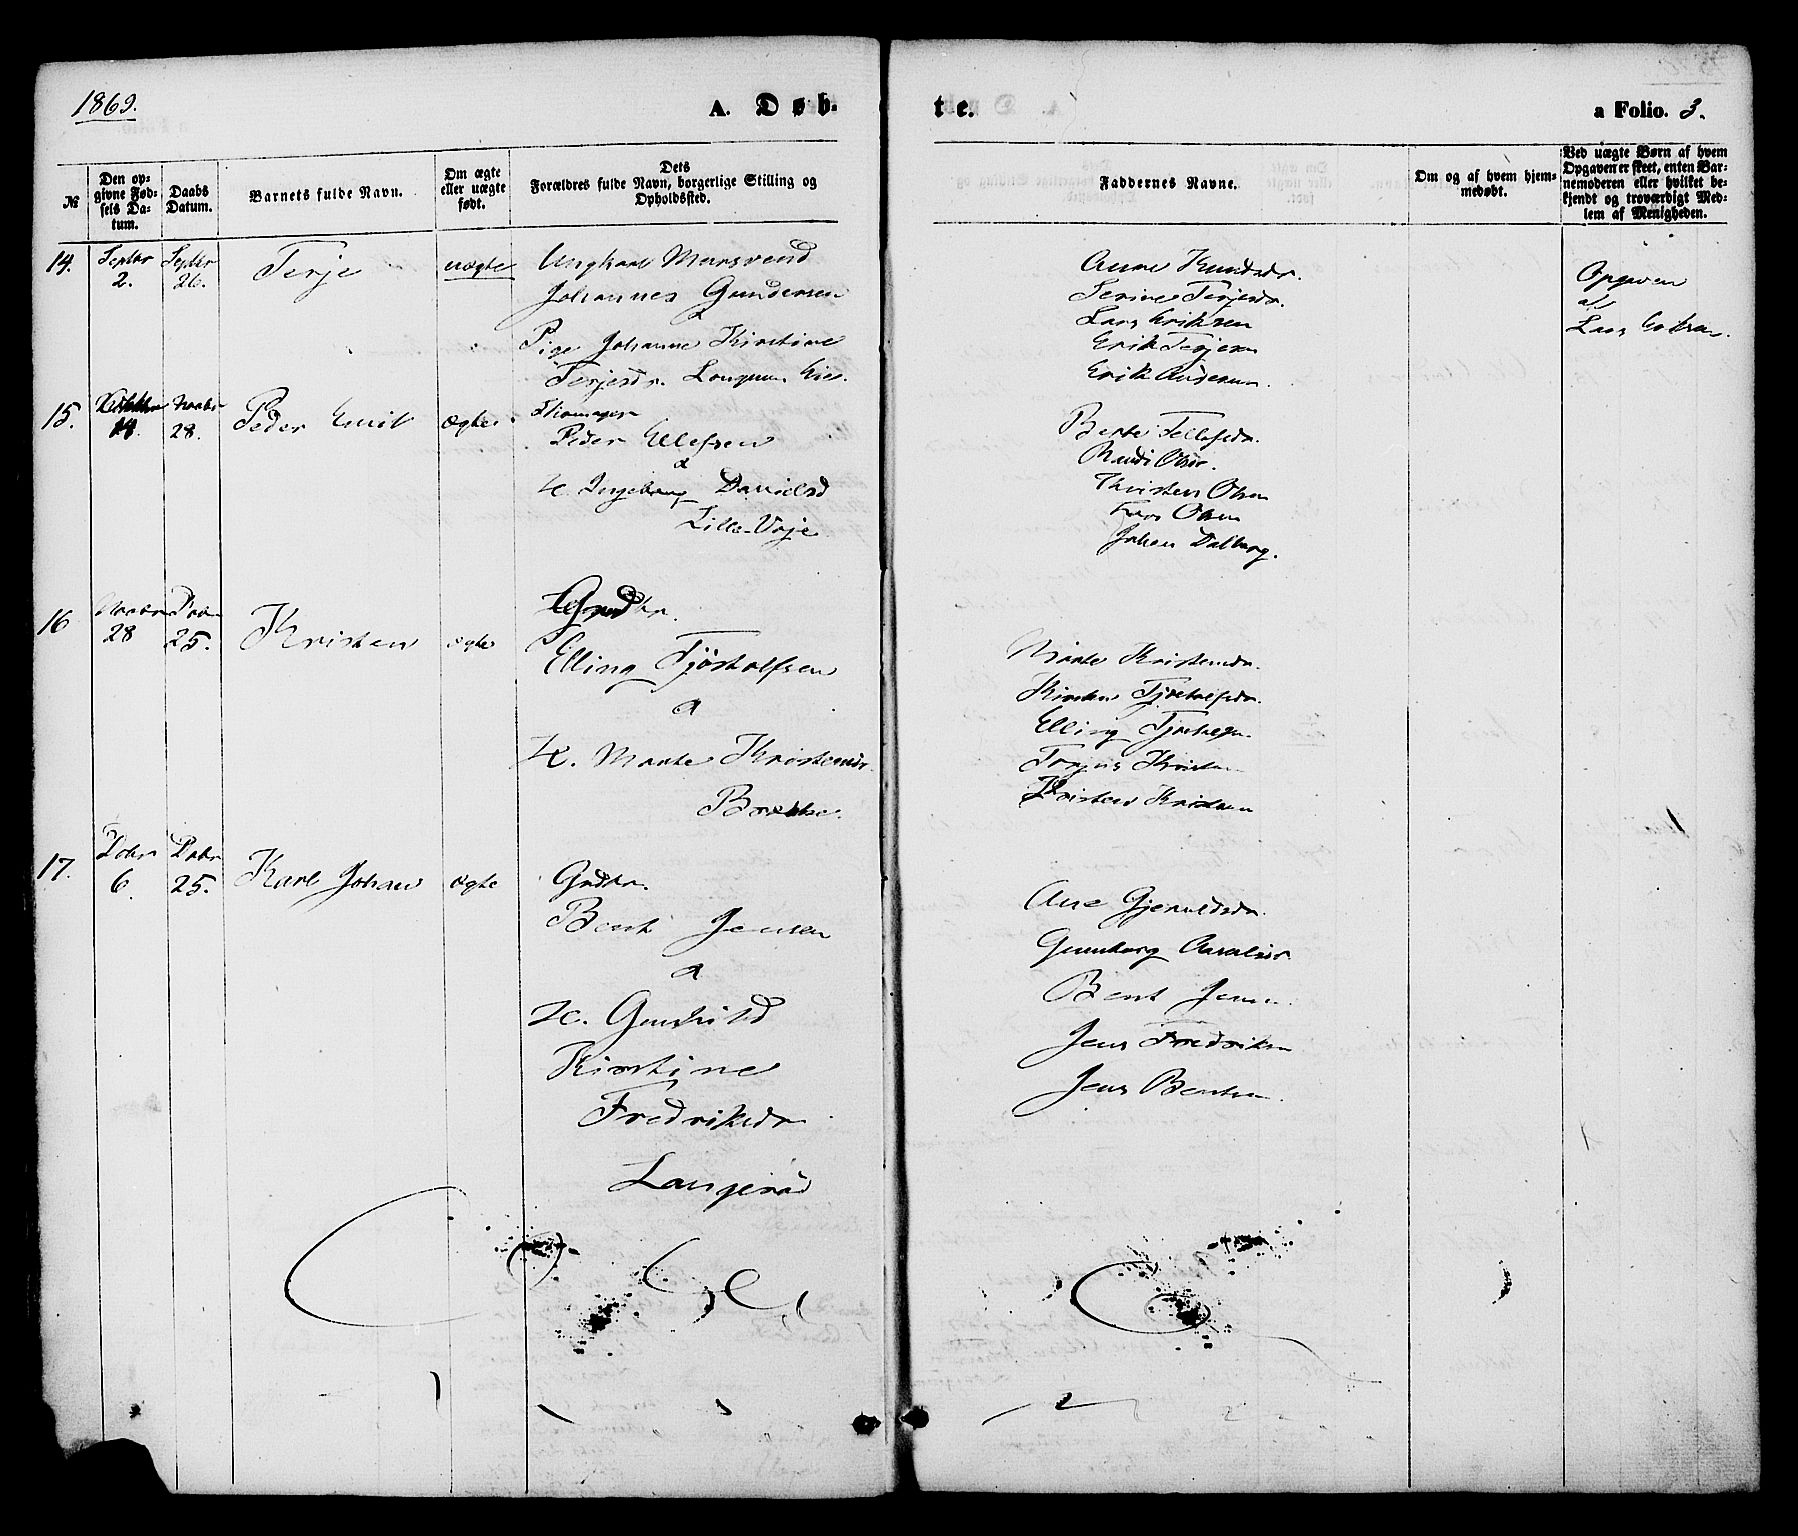 1869.
A. Døb-
te.
a Folio. 3.
№
Den op-
givne Fød-
sels Da-
tum.
Daabs
Datum.
Barnets fulde Navn.
Om ægte
eller uægte
født.
Dets
Forældres fulde Navn, borgerlige Stilling og
Opholdssted.
Faddernes Navne.
Om og af hvem hjem-
medøbt.
Ved uægte Børn af hvem
Opgaven er skeet, enten Bar-
nemoderen eller hvilket be-
kjendt og troværdigt Med-
lem af Menigheden.
14.
Septbr
2.
Septbr
26.
Terje
uægte
Ungkarl
Johannes Gundersen
&
Pige Johanne Kirstine
Terjesdr.
Anne Knudsdr.
Serine Terjesdr.
Lars Eriksen
Erik Terjesen
Erik Andersen.
Opgaven
af
Lars
15.
18.
Novbr
28.
Peder Emil
ægte
Peder Ellefsen
&
H. Ingeborg Danielsd
Lille-Voje
Berte Tellefsdr.
Randi Olsdr.
Thorsten Olsen
Lars Olsen
Johan Dalberg.
16
Novbr
28
Decbr
25.
Kristen
ægte
Elling Tjøstolfsen
&
H. Marte Kristensdr.
Brække.
Marte Kristensdr.
Kirsten Tjøstolfsdr.
Elling Tjøstolfsen
Torjus Kristensen
Kristen Kristensen
17.
Decbr
6.
Decbr
25.
Karl Johan
ægte
Grdbr.
Bent Jensen
&
H. Gunhild
Kirstine
Fredriksdr
Langerød
Ane Gjeruldsdr.
Gunborg
Bent Jensen
Jens Fredriksen
Jens Bentsen.